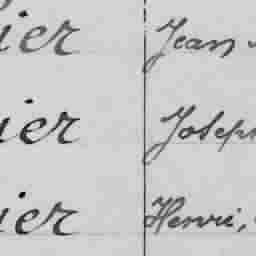 ier Jean
ier Joseph
ier Henri,